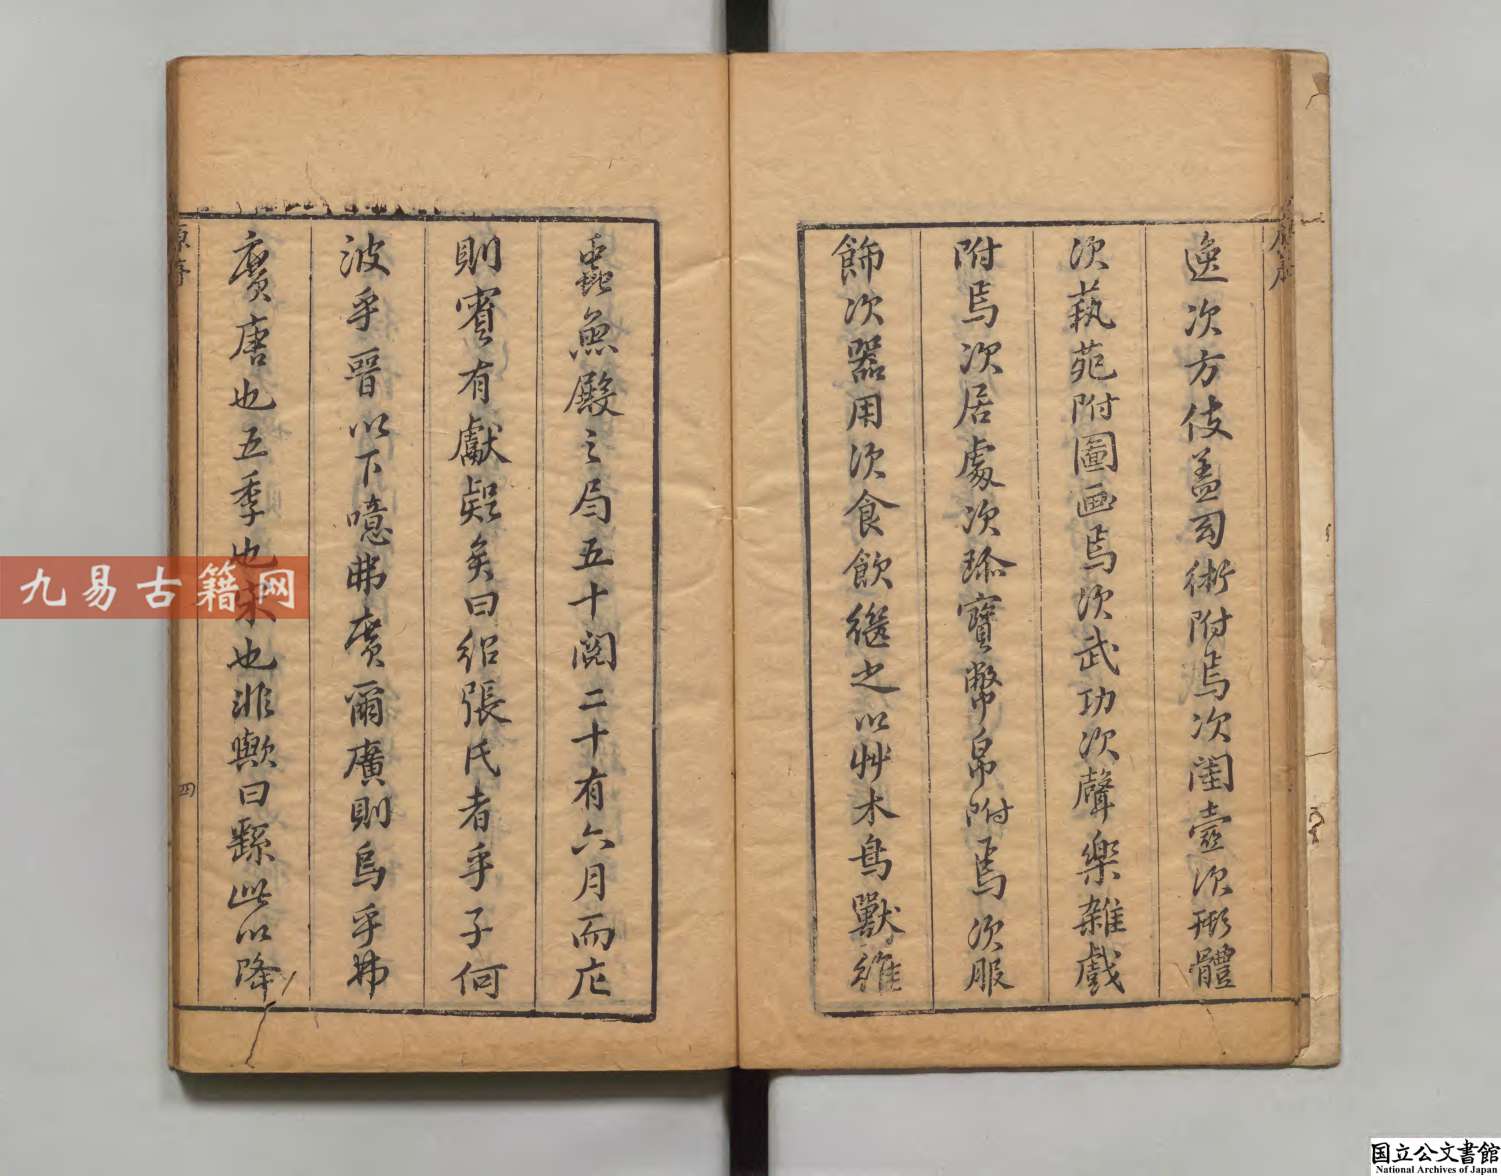 逸次方伎蓋司術附焉次閨壼次形體
次藝苑附圖画焉次武功次聲樂雜戲
附焉次居處次珍寶幣帛附焉次服
飾次器用次食飲繼之以艸木鳥獸維
蟲魚殿之局五十閱二十有六月而庀
則賓有獻疑矣曰紹張氏者乎子何
波乎晋以下噫弗廣爾廣則烏乎弗
廣唐也五季也宋也非歟曰繇此以降
原序
四
九易古籍网
国立公文書館
National Archives of Japan